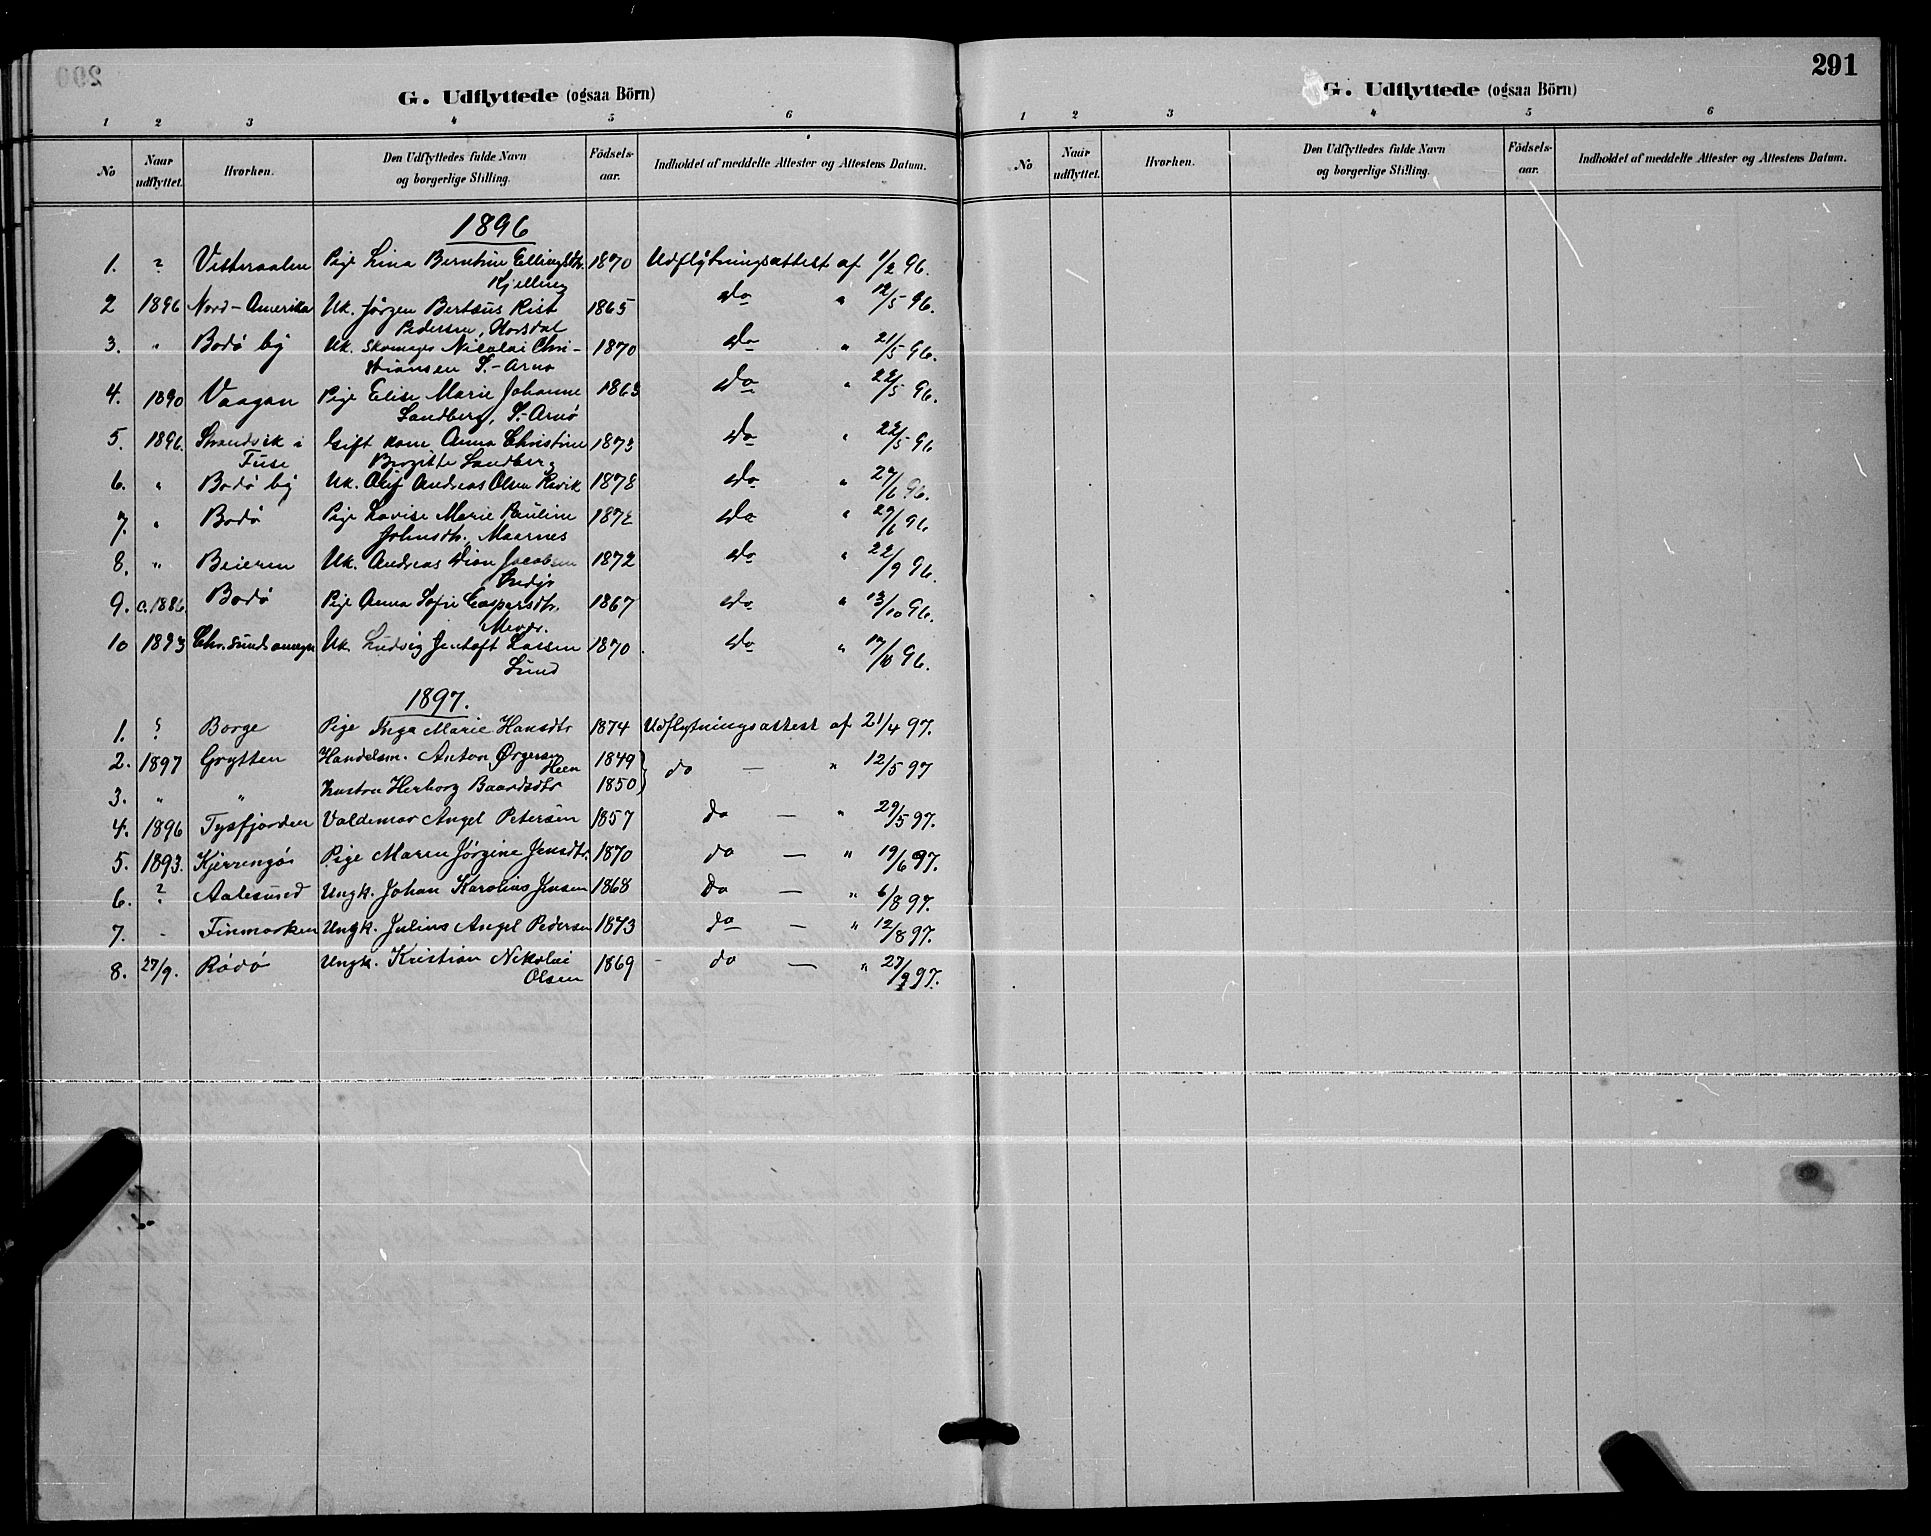 G. Udflyttede (ogsaa Börn)
1 2 3 4 5 6
No Naar udflyttet. Hvorhen. Den Udflyttedes fulde Navn og borgerlige Stilling. Födsels-aar. Indholdet af meddelte Attester og Attestens Datum.
1896
1. ? Vesteraalen Pige Lina Berntine Ellingsdtr. 1870 Udflytningsattest af 1/2 96.
Kjelling
2 1896 Nord-Amerika Uk. Jörgen Bertæus Rist 1865 do " 12/5 96.
Pedersen, Horsdal
3. " Bodö by Uk. Skomager Nicolai Chri- 1870 do " 21/5 96.
stiansen S.-Arnö
4. 1890 Vaagan Pige Elise Marie Johanne 1863 do " 22/5 96.
Sandberg, S.-Arnö
5. 1896. Strandvik i Gift kone Anna Christine 1873 do " 22/5 96
Fuse Birgitte Sandberg
6. " Bodö by Uk. Olif Andreas Olsen 1878 do " 27/6 96.
7. " Bodö Pige Lovise Marie Pauline 1872 do " 29/6 96
Johnsdtr. Maarnes
8. " Beieren Uk. Andreas Dion Jacobsen 1872 do " 22/9 96.
9. c. 1886. Bodö Pige Anna Sofie Caspersdtr. 1867 do " 13/10 96.
Mevdr.
10 1893 Chr.sunds omegn Uk. Ludvig Jentoft Larsen 1870. do " 17/10 96.
Lund
1897.
1. ? Borge Pige Inga Marie Hansdtr 1874 Udflytningsattest af 21/4 97.
2. 1897 Grytten Handelsm. Anton Örgersen 1849 } do — " 12/5 97
Heen
3. " " Kustru Herborg Baardsdtr 1850
4. 1896 Tysfjorden Valdemar Angel Petersen 1857 do — " 29/5 97.
5. 1893. Kjerringöi Pige Maren Jörgine Jensdtr. 1870 do — " 19/6 97.
6. ? Aalesund Ungk. Johan Karolius Jensen 1868 Do — " 6/8 97.
7. - Finmarken Ungk. Julius Angel Pedersen 1873 do — " 12/8 97.
8. 27/9. Rödö Ungk. Kristian Nikolai 1869 - do — " 27/9 97.
Olsen
291
G. Udflyttede (ogsaa Börn)
1 2 3 4 5 6
No Naar udflyttet. Hvorhen. Den Udflyttedes fulde Navn og borgerlige Stilling. Födsels-aar. Indholdet af meddelte Attester og Attestens Datum.